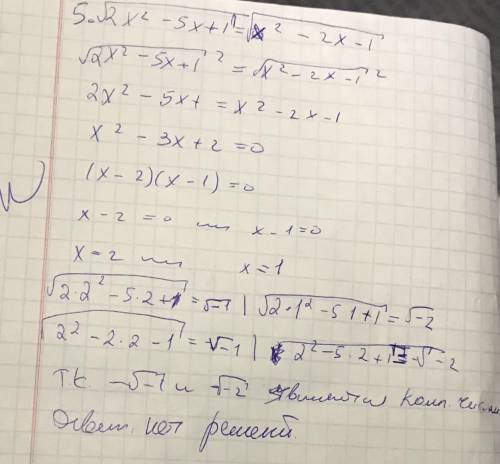 5. √2x² - 5x + 1 = √x² - 2x - 1
√2x² - 5x + 1 ² = √x² - 2x - 1 ²
2x² - 5x + = x² - 2x - 1
x² - 3x + 2 = 0
(x - 2)(x - 1) = 0
x - 2 = 0 или x - 1 = 0
x = 2 или x = 1
√2·2² - 5·2 + 1 = √-1 | √2·1² - 5·1 + 1 = √-2
√2² - 2·2 - 1 = √-1 | 2² - 5·2 + 1 = √-2
Тк √-1 и √-2 являются комп. числами
Ответ: нет решений.